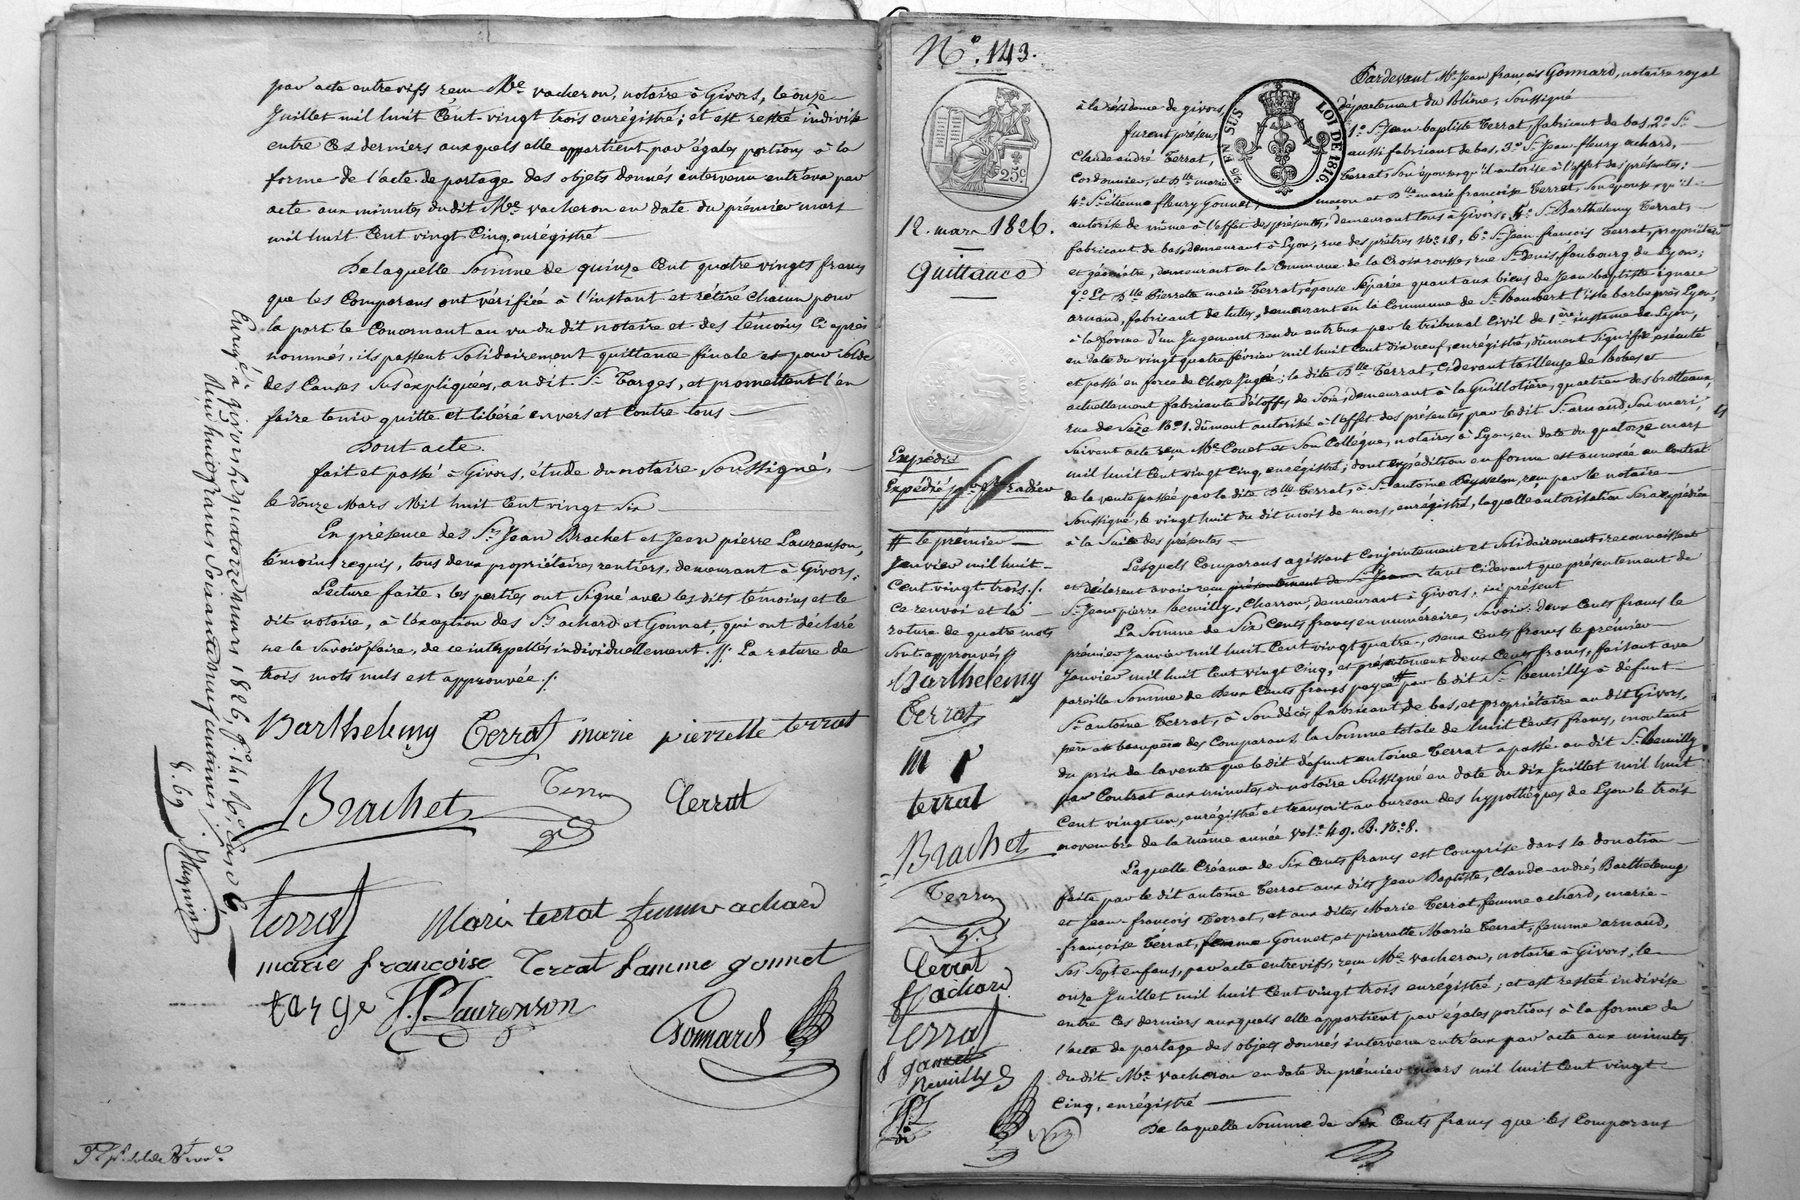 par acte entrevifs reçu Me. vacheron, notaire à Givors, le onze
Juillet mil huit Cent-vingt trois enrégistré; et est restée indivise
entre Ces derniers auxquels elle appartient par égales portions à la
forme de l'acte de partage des objets donnés intervenu entr'eux par
acte aux minutes dudit Me. vacheron en date du prémier mars
mil huit Cent vingt Cinq, enrégistré
De laquelle Somme de quinze Cent quatre vingts francs
que les Comparans ont vérifiée à l'instant et rétiré chacun pour
la part le Concernant au vu du dit notaire et des témoins Ci après
nommés, ils passent Solidairement quittance finale et pour Solde
des Causes Susexpliquées, audit Sr. Targes, et promettent l'en
faire tenir quitte et libéré envers et Contre tous
Dont acte
fait et passé à Givors, étude du notaire Soussigné,
le douze Mars Mil huit Cent vingt Six
En présence des Srs. Jean Brachet et Jean pierre Laurenson,
témoins requis, tous deux propriétaires rentiers, demeurant à Givors.
Lecture faite, les parties ont Signé avec les dits témoins et le
dit notaire, à l'éxception des Srs. achard et Gonnet, qui ont déclaré
ne le Savoir faire, de ce interpellés individuellement. La rature de
trois mots nuls est approuvée
Barthelemy Terrat marie pierrette terrat
Brachet Terra Terrat
terrat Marie terrat femme achard
marie francoise Terrat famme gonnet
targe J. P. Laurenson
Gonnard
Enregé. à givors le quatorze mars 1826, fo. 141 Ro. Case 6
Reçu huit francs Soixante neuf centimes
8.69
No. 143.
25c.
2/5 EN SUS
LOI DE 1816.
12. mars 1826.
Quittance
Expédié
Expédié
le prémier
Janvier mil huit
Cent vingt trois
Ce renvoi et la
rature de quatre mots
Sont approuvés
Barthelemy
Terrat
m p
terrat
Brachet
Terra
Terrat
f achard
terrat
f gonnet
Neuilly
Pardevant Me. Jean françois Gonnard, notaire royal
à la résidence de givors, département du Rhône, Soussigné
furent présens 1o. Sr. Jean baptiste Terrat fabricant de bas, 2o. Sr.
Claude andré Terrat, aussi fabricant de bas, 3o. Sr. Jean fleury achard,
Cordonnier, et Dlle. marie Terrat, Son épouse qu'il autorise à l'effet des présentes;
4o. Sr. étienne fleury Gonnet, maçon et Dlle. marie françoise Terrat, Son épouse, qu'il
autorise de même à l'effet des présentes, demeurant tous à Givors, 5o. Sr. Barthelemy Terrat,
fabricant de bas, demeurant à Lyon, rue des prêtres No. 18, 6o. Sr. Jean françois Terrat, propriétaire
et géomètre, demeurant en la Commune de la Croix rousse, rue St. Denis, faubourg de Lyon;
7o. Et Dlle. Pierrette marie Terrat, épouse Séparée quant aux biens de Jean baptiste ignace
arnaud, fabricant de tulles, demeurant en la Commune de St. Rambert l'isle barbe près Lyon,
à la forme d'un Jugement rendu entr'eux par le tribunal Civil de 1ère. instance de Lyon,
en date du vingt quatre février mil huit Cent dix neuf, enrégistré, dûment Signifié exécuté
et passé en force de Chose Jugée; la dite Dlle. Terrat, Cidevant tailleuse de Robes et
actuellement fabricante d'étoffes de Soie, demeurant à la Guillotière, quartier des brotteaux,
rue de Sèze No. 1. dûment autorisée à l'effet des présentes par le dit Sr. arnaud Son mari,
Suivant acte reçu Me. Couet et Son Collègue, notaires à Lyon, en date du quatorze mars
mil huit Cent vingt Cinq, enrégistré; dont expédition en forme est annexée au Contrat
de la vente passée par la dite Dlle. Terrat, à Sr. antoine Peysselon, reçu par le notaire
Soussigné, le vingt huit du dit mois de mars, enrégistré, laquelle autorisation Sera expédiée
à la Suite des présentes
Lesquels Comparans agissant Conjointement et Solidairement, reconnaissent
et déclarent avoir reçu présentement de Sr. Jean tant Cidevant que présentement de
Sr. Jean pierre Neuilly, Charron, demeurant à Givors, ici présent
La Somme de Six Cents francs en numéraire, Savoir: deux Cents francs le
prémier Janvier mil huit Cent vingt quatre, deux Cents francs le prémier
Janvier mil huit Cent vingt Cinq, et présentement deux Cents francs, faisant avec
pareille Somme de deux Cents francs payée par le dit Sr. Neuilly à défunt
Sr. antoine Terrat, à Son décès fabricant de bas, et propriétaire au dit Givors,
père et beaupère des Comparans, la Somme totale de huit Cents francs, montant
du prix de la vente que le dit défunt antoine Terrat a passée au dit Sr. Neuilly
par Contrat aux minutes du notaire Soussigné en date du dix Juillet mil huit
Cent vingt un, enrégistré et transcrit au bureau des hypothèques de Lyon le trois
novembre de la même année vol. 49. B. No. 8.
Laquelle Créance de Six Cents francs est Comprise dans la donation
faite par le dit antoine Terrat aux dits Jean Baptiste, Claude-andré, Barthelemy
et Jean françois Terrat, et aux dites Marie Terrat femme achard, marie
françoise Terrat, femme Gonnet, et pierrette Marie Terrat, femme arnaud,
Ses Sept enfans, par acte entrevifs, reçu Me. vacheron, notaire à Givors, le
onze Juillet mil huit Cent vingt trois enrégistré; et est restée indivise
entre Ces derniers auxquels elle appartient par égales portions à la forme de
l'acte de partage des objets donnés intervenu entr'eux par acte aux minutes
du dit Me. vacheron en date du prémier mars mil huit Cent vingt
Cinq, enrégistré
De laquelle Somme de Six Cents francs que les Comparans